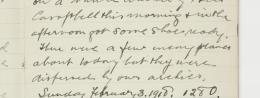 Campbell this morning & in the
afternoon got some shoes ready.
There were a few enemy planes
about today but they were
dispersed by our archies.
Sunday February 3, 1918. 1280.